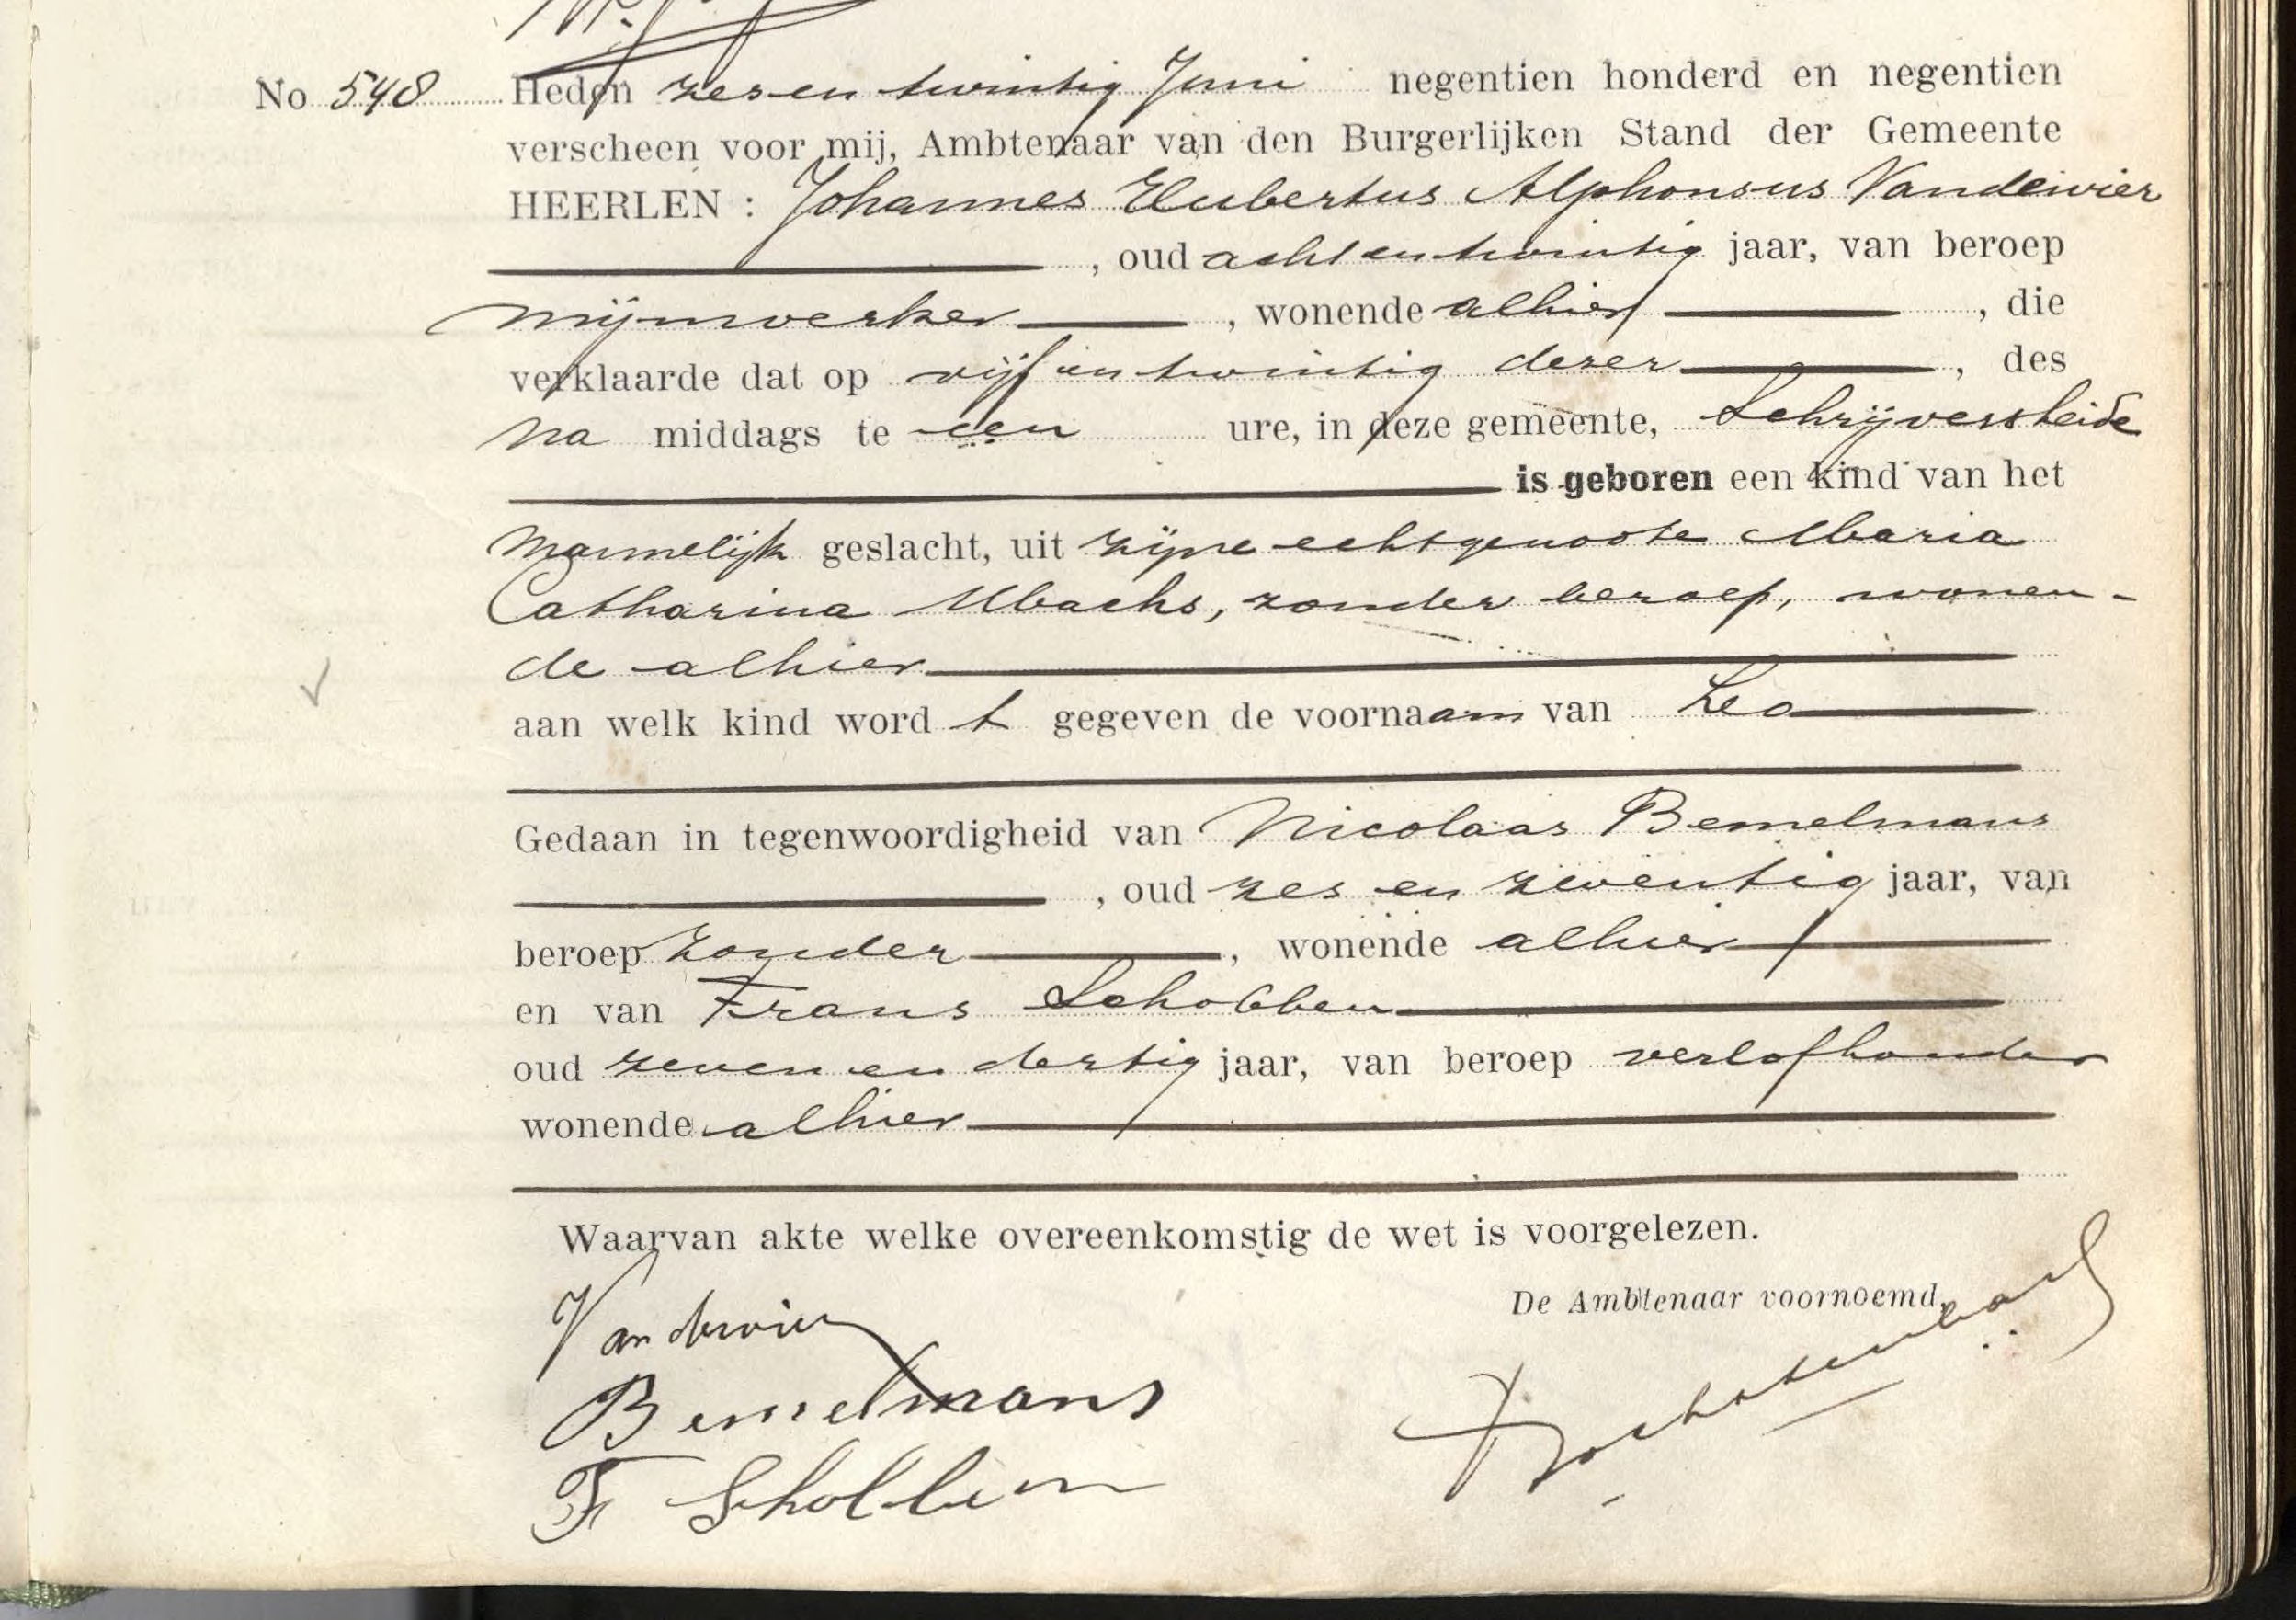 No 548 Heden zes en twintig Juni negentien honderd en negentien
verscheen voor mij, Ambtenaar van den Burgerlijken Stand der Gemeente
HEERLEN : Johannes Hubertus Alphonsus Vandewier
, oud acht en twintig jaar, van beroep
mijnwerker , wonende alhier , die
verklaarde dat op vijf en twintig dezer , des
na middags te een ure, in deze gemeente, Schrijversheide
is geboren een kind van het
mannelijk geslacht, uit zijne echtgenoote Maria
Catharina Ubachs, zonder beroep, wonen-
de alhier
aan welk kind word t gegeven de voornaam van Leo
Gedaan in tegenwoordigheid van Nicolaas Bemelmans
, oud zes en zeventig jaar, van
beroep zonder , wonende alhier
en van Frans Schobben
oud zeven en dertig jaar, van beroep verlofhouder
wonende alhier
Waarvan akte welke overeenkomstig de wet is voorgelezen.
De Ambtenaar voornoemd,
Vandewier
Bemelmans
F Schobben